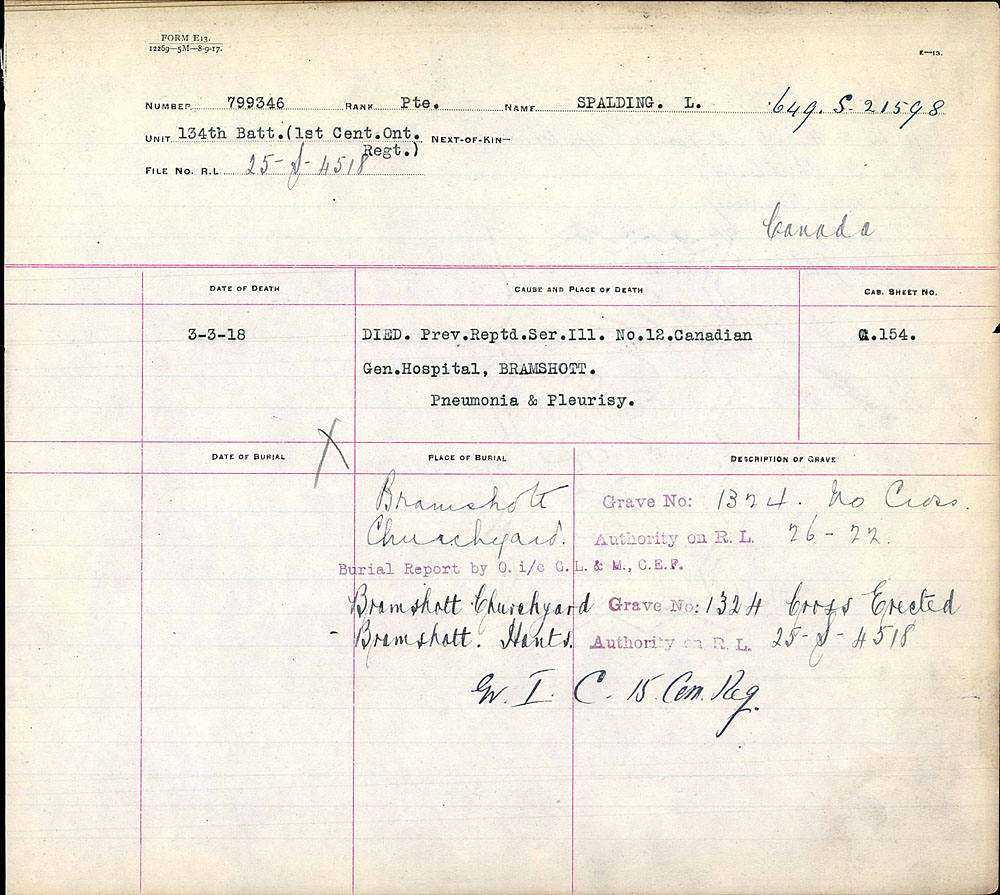 FORM E13.
12269—5M—8-9-17.
E—13.
NUMBER 799346 RANK Pte. NAME SPALDING. L. 649. S. 21598
UNIT 134th Batt.(1st Cent.Ont. NEXT-OF-KIN—
Regt.)
FILE NO. R.L. 25-S-4518
Canada
DATE OF DEATH CAUSE AND PLACE OF DEATH CAS. SHEET NO.
3-3-18 DIED. Prev.Reptd.Ser.Ill. No.12.Canadian G.154.
Gen.Hospital, BRAMSHOTT.
Pneumonia & Pleurisy.
DATE OF BURIAL X PLACE OF BURIAL DESCRIPTION OF GRAVE
Bramshott Grave No: 1324. No Cross.
Churchyard. Authority on R. L. 26-22.
Burial Report by O. i/c G. L. & M., C.E.F.
Bramshott Churchyard Grave No: 1324 Cross Erected
- Bramshott. Hants. Authority on R. L. 25-S-4518
C. 15. Can. Reg.